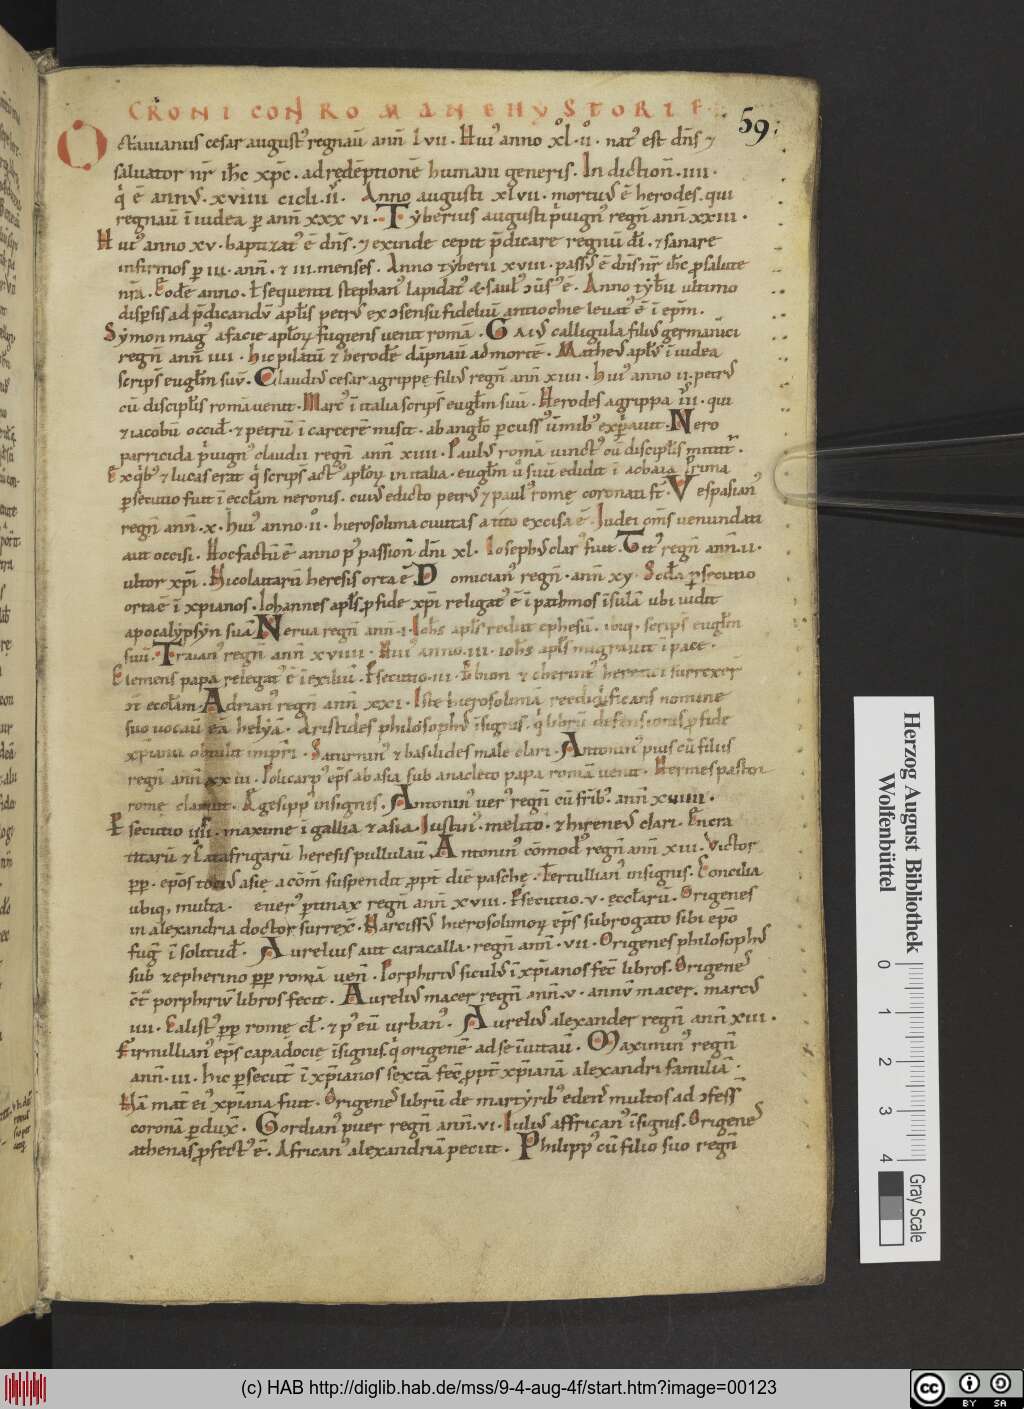 CRONICON ROMANE HYSTORIE
59
Octavianus cesar august᾽ regnau̅ ann̅ lvii. Hui᾽ anno xl.ii. nat᾽ est dn̅s ⁊
saluator nr̅ ihc̅ xpc̅. ad rede̅ptione̅ humani generis. In diction̅. iiii.
q̍ e̅ ann᾽ xviiii cicli. ii. Anno augusti xlvii. mortu᾽ e̅ herodes. qui
regnau̅ i̅ iudea p̲ ann̅ xxxvi. Tyberius augusti p̍uign᾽ regn̅ ann̅ xxiii.
Hui᾽ anno xv. baptizat᾽ e̅ dn̅s. ⁊ exinde cepit p̅dicare regnu̅ di̅. & sanare
infirmos p̲ iii. ann̅. & iii. menses. Anno tyberii xviii. pass᾽ e̅ dn̅s nr̅ ihc̅ p salute
nr̅a. Eode̅ anno. t̅ sequenti stephan᾽ lapidat᾽ & saul᾽ ↄu̅s᾽ e̅. Anno tyb̅ii ultimo
disp̲sis ad p̅dicandu᾽ apl̅is petr᾽ ex ↄsensu fideliu̅ antiochie leuat᾽ e̅ i̅ ep̅m.
Symon mag᾽ a facie aplo̅ꝝ fugiens uenit roma̅. GAI᾽ calligula fili᾽ germanici
regn̅ ann̅ iiii. hic pilatu̅ & herode̅ da̅pnau̅ ad morte̅. Mathe᾽ apl᾽s̅ i̅ iudea
scrips̅ eugl̅m suu̅. Claudi᾽ cesar agrippe fili᾽ regn̅ ann̅ xiiii. hui᾽ anno ii. petr᾽
cu̅ discipl̅is roma̅ uenit. Marc᾽ i̅ italia scrips̅ eugl̅m suu̅. Herodes agrippa iii. qui
& iacobu̅ occid̅. & petru̅ i̅ carcere̅ misit. ab anglo̅ p̲cuss᾽ u̅mib᾽ exp̍auit. Nero
parricida p̍uign᾽ claudii regn̅ ann̅ xiiii. Paul᾽ roma̅ uinct᾽ cu̅ discipl̅is mittit᾽.
Ex q̍b᾽ & lucas erat q̍ scrips̅ act᾽ aplo̅ꝝ in italia. eugl̅m u̅ suu̅ edidit i̅ achaia. Prima
p̲secutio fuit i̅ eccl̅am neronis. cui᾽ edicto petr᾽ & paul᾽ rome̜ coronati st̅. Vespasian᾽
regn̅ ann̅. x. hui᾽ anno. ii. hierosolima ciuitas a tito excisa e̅. Iudei om̅s uenundati
aut occisi. Hoc factu̅ e̅ anno p᾽ passion̅ dn̅i xl. Ioseph᾽ clar᾽ fuit. Tit᾽ regn̅ ann̅. ii.
ultor xp̅i. Nicolaitaru̅ heresis orta e̅. Domician᾽ regn̅. ann̅ xv. Scd̅a p̲secutio
orta e̅ i̅ xpianos. Iohannes apl̅s p fide xp̅i religat᾽ e̅ i̅ pathmos i̅sula̅ ubi uidit
apocalypsyn sua̅. Nerua regn̅ ann̅. i. Ioh̅s apl̅s rediit ephesu̅. ibiq. scrips eugl̅m
suu̅. Traian᾽ regn̅ ann̅ xviiii. Hui᾽ anno. iii. ioh̅s apl̅s migrauit i̅ pace.
Clemens papa relegat᾽ e̅ i̅ exiliu̅. P̲secutio. iii. Ebion & cherint᾽ heretici surrexer̅
in̅ eccl̅am. Adrian᾽ regn̅ ann̅ xxi. Iste hierosolima̅ reedificans nomine
suo uocau̅ ea̅ helya̅. Aristides philosoph᾽ i̅signis. q̍ libru̅ defensionis p fide
xp̅iana obtulit imp̲ri̅. Saturnin᾽ & basilides male clari. Antonin᾽ pius cu̅ filiis
regn̅ ann̅ xxiii. Policarp᾽ ep̅s ab asia sub anacleto papa roma̅ uenit. Hermes pastor
rome̜ claruit. Egesipp᾽ insignis. Antonin᾽ uer᾽ regn̅ cu̅ fr̅ib᾽. ann̅ xviiii.
P̲secutio iiii. maxime i̅ gallia & asia. Iustin᾽. melito. & hirene᾽ clari. Encra
titaru̅ & catafrigaru̅ heresis pullulau̅. Antonin᾽ co̅mod᾽ regn̅ ann̅ xiii. Victor
pp̲. ep̅os toti᾽ asie̜ a co̅m̅ suspendit. ppt̅ die̅ pasche̜. Tertullian᾽ insignis. Concilia
ubiq, multa. euer᾽ p̲tinax regn̅ ann̅ xviii. P̲secutio. v. eccl̅aru̅. Origenes
in alexandria doctor surrex̅. Narciss᾽ hierosolimoꝝ ep̅s subrogato sibi ep̅o
fug̅ i̅ solitud̅. Aurelius aut caracalla. regn̅ ann̅. vii. Origenes philosoph᾽
sub zepherino pp̲ roma̅ uen̅. Porphiri᾽ sicul᾽ i̅ xp̅ianos fec̅ libros. Origene᾽
c̅t̅ porphiriu̅ libros fecit. Aureli᾽ macer regn̅ ann̅. v. ann᾽ macer. marc᾽
iiii. Calist᾽ pp̲ rome̜ cl̅. & p᾽ eu̅ urban᾽. Aureli᾽ alexander regn̅ ann̅ xiii.
Firmillian᾽ ep̅s capadocie̜ i̅signis. q̍ origene̅ ad se i̅uitau̅. Maximin᾽ regn̅
ann̅. iii. hic p̲secut᾽ i̅ xp̅ianos sexta̅ fec̅. ppt̅ xp̅iana̅ alexandri familia̅.
Na̅ mat̅ ei᾽ xp̅iana fuit. Origene᾽ libru̅ de martyrib᾽ eden᾽ multos ad ↄfess̅
corona̅ p̲dux̅. Gordian᾽ puer regn̅ ann̅. vi. Iuli᾽ affrican᾽ i̅signis. Origene᾽
athenas pfect᾽ e̅. African᾽ alexandria̅ peciit. Philipp᾽ cu̅ filio suo regn̅
Herzog August Bibliothek
Wolfenbüttel
0 1 2 3 4
Gray Scale
(c) HAB http://diglib.hab.de/mss/9-4-aug-4f/start.htm?image=00123
cc BY SA